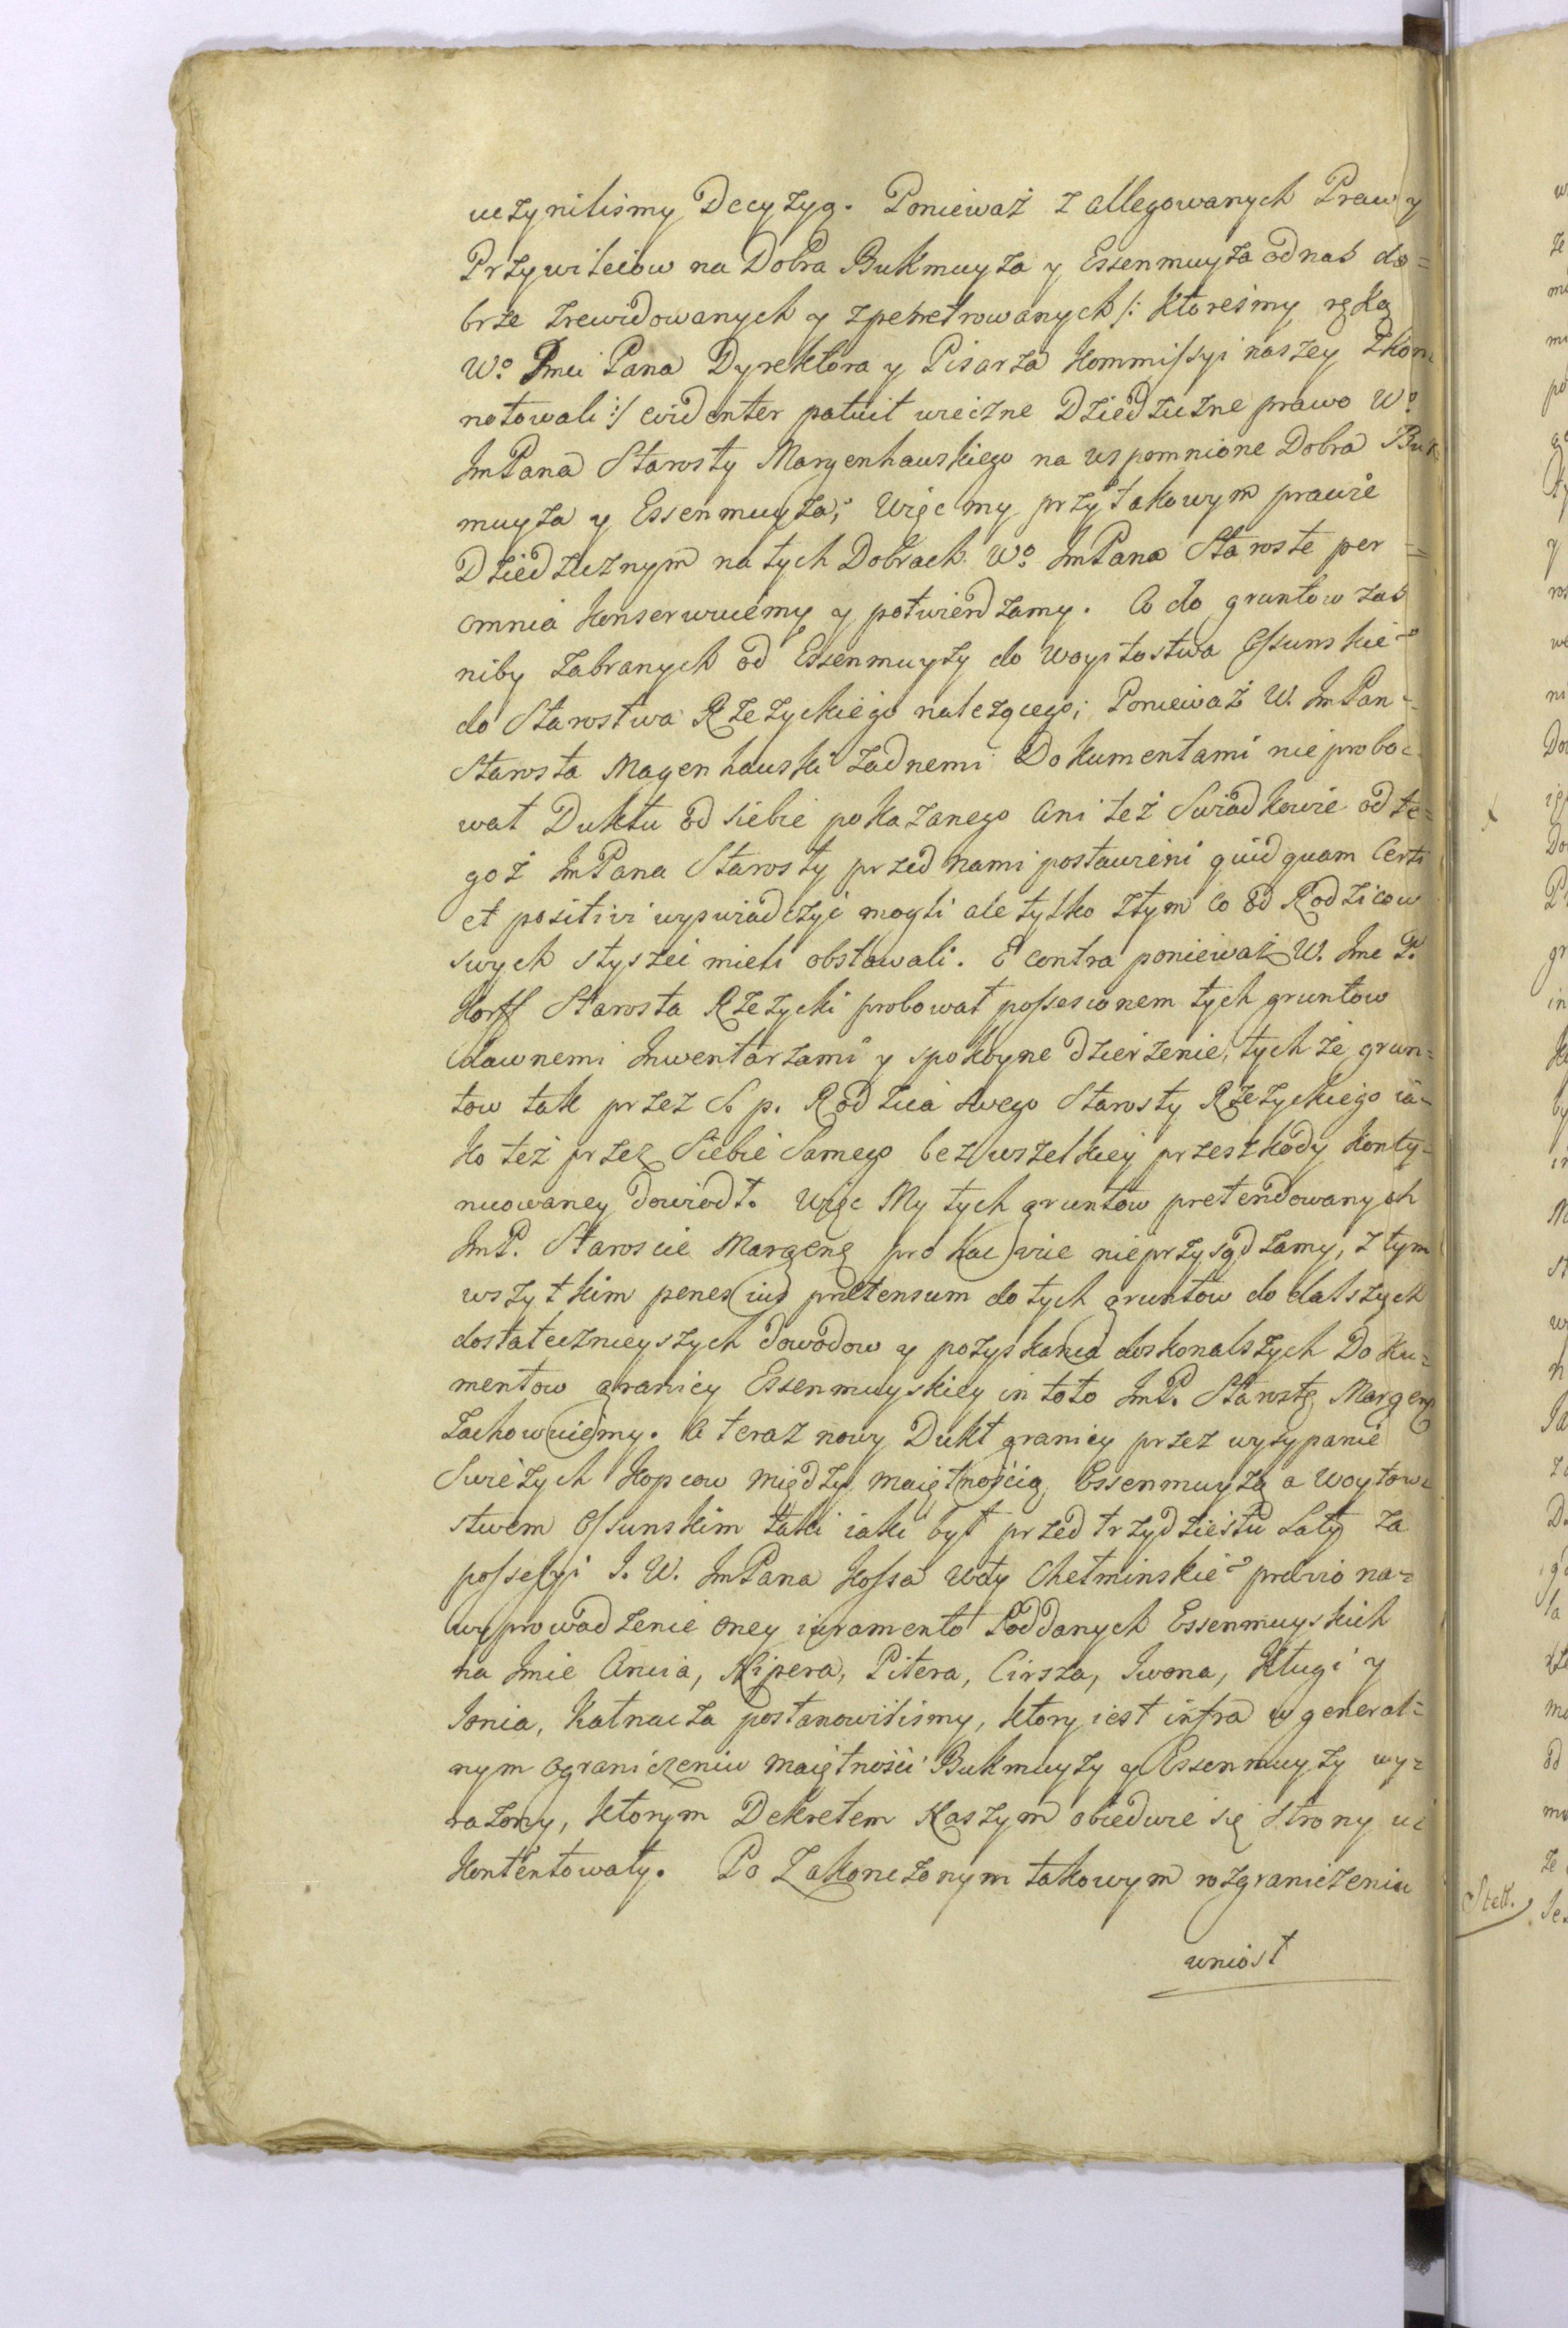 uczyniliśmy Decyzyą. Ponieważ z allegowanych Praw y
Przywileiow na Dobra Bukmuyza y Essenmuyza od nas do=
brze zrewidowanych y zpenetrowanych /: ktoreśmy ręką
Wo. Jmci Pana Dyrektora y Pisarza Kommissyi naszey zkon
notowali :/ evidenter patuit wieczne Dziedziczne prawo Wo.
JmPana Starosty Margenhauskiego na wspomnione Dobra Buk
muyza y Essenmuyza; Więc my przy takowym prawie
Dziedzicznym na tych Dobrach Wo. JmPana Staroste per =
omnia konserwuiemy y potwierdzamy. Co do gruntow zas
niby zabranych od Essenmuyzy do Woytostwa Ossunskieo
do Starostwa Rzezyckiego należącego; Ponieważ W. JmPan
Starosta Magenhauski żadnemi Dokumentami nie probo=
wał Duktu od siebie pokazanego Ani też Swiadkowie od te=
goż JmPana Starosty przed nami postawieni quidquam Certi
et positivi wyswiadczyć mogli ale tylko z tym co od Rodzicow
swych słyszeć mieli obstawali. E contra ponieważ W. Jmc P.
Korff Starosta Rzezycki probował possesionem tych gruntow
dawnemi Inwentarzami y spokoyne dzierżenie, tychże grun=
tow tak przez S. p. Rodzica swego Starosty Rzezyckiego ia=
ko też przez Siebie Samego bez wszelkiey przeszkody konty=
nuowaney dowiodł. Więc My tych gruntow pretendowanych
JmP. Staroscie Margenę pro hac vice nieprzysądzamy, z tym
wszytkim penes ius prætensum do tych gruntow do dalszych
dostatecznieyszych dowodow y pozyskania doskonalszych Doku=
mentow granicy Essenmuyskiey in toto JmP. Starostę Margenę
Zachowuiemy. A teraz nowy Dukt granicy przez wysypanie
Swieżych Kopcow między maiętnością Essenmuyzą a Woytow=
stwem Ossunskim taki iaki był przed trzydziestu Laty za
possessyi J. W. JmPana Hossa Wdy Chełminskieo prævio na=
wyprowadzenie oney iuramento Poddanych Essenmuyskich
na Jmie Ancia, Kipera, Pitera, Cirsza, Iwona, Kługi y
Jonia, Kalnacza postanowiliśmy, ktory iest infra w general=
nym Ograniczeniu maiętności Bukmuyzy y Essenmuyzy wy=
rażony, ktorym Dekretem Naszym obiedwie się strony u
kontentowały. Po Zakonczonym takowym rozgraniczeniu
wniosł
Stett.